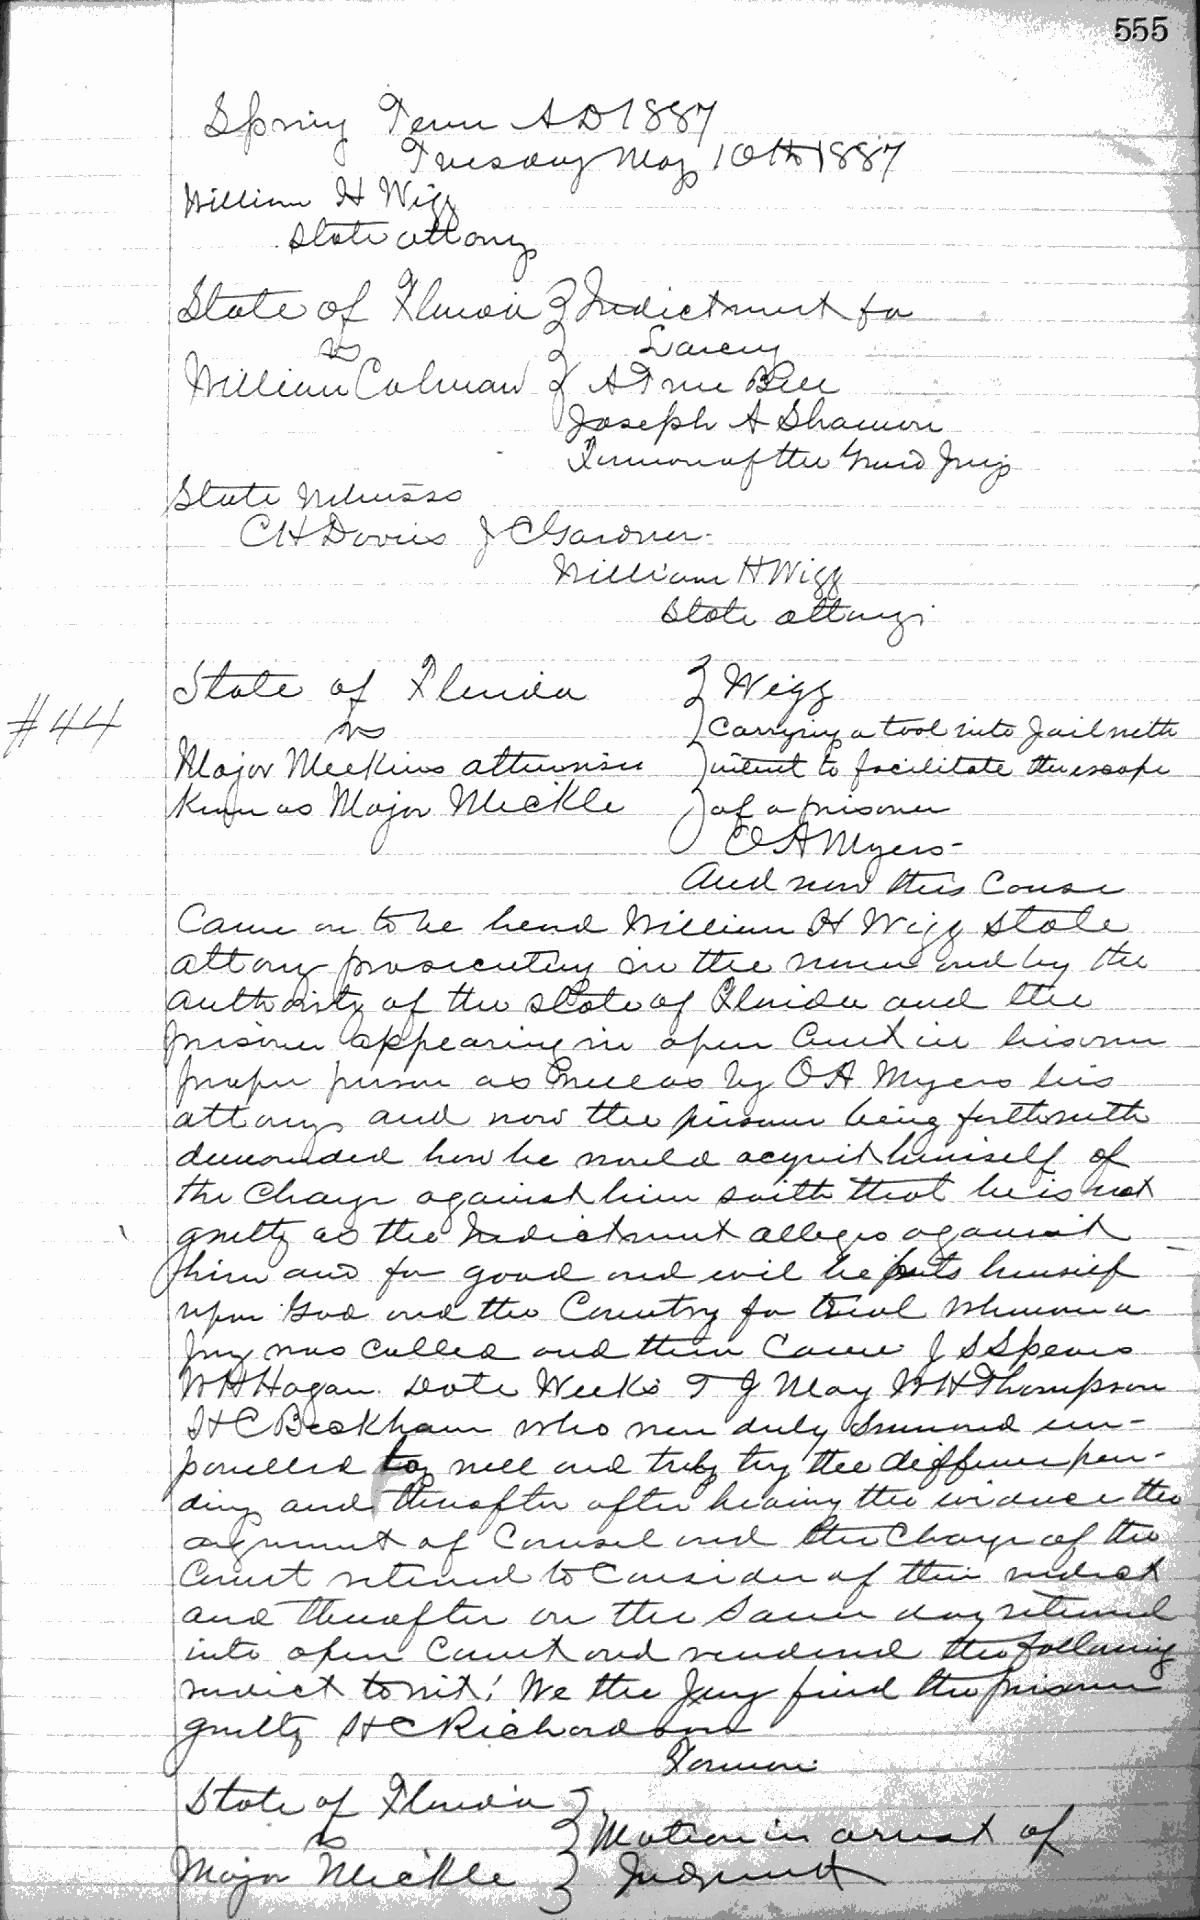 555
Spring Term A D 1887
Tuesday May 10th 1887
William H Wigg
State attorny
State of Florida } Indictment for
vs } Larceny
William Colman } A True Bill
Joseph A Shannon
Forman of the Grand Jury
State Witnesses
C H Davis J C Gardner
William H Wigg
State attorny
State of Florida } Wigg
#44 vs } Carrying a tool into Jail with
Major Meekins otherwise } intent to facilitate the escape
Known as Major Mickle } of a prisoner
O A Myers-
And now this Cause
Came on to be heard William H Wigg State
attorny prosecuting in the name and by the
authority of the State of Florida and the
prisoner appearing in open Court in his own
proper person as well as by O A Myers his
attorny and now the prisoner being forthwith
demanded how he would acquit himself of
the Charge against him saith that he is not
guilty as the Indictment alleges against
him and for good and evil he puts himself
upon God and the Country for trial Whereon a
Jury was Called and then Came J S Spears
W H Hogan Date Weeks T J May W H Thompson
H C Beckham who were duly Summond em-
panelled to well and truly try the difference pen-
ding and thereafter after hearing the evidence the
argument of Counsel and the Charge of the
Court retired to Consider of their verdict
and thereafter on the Same day returned
into open Court and rendered the following
verdict to wit! We the Jury find the prisoner
guilty H C Richardson
Forman
State of Florida }
vs } Motion in arrest of
Major Mickle } Judgment